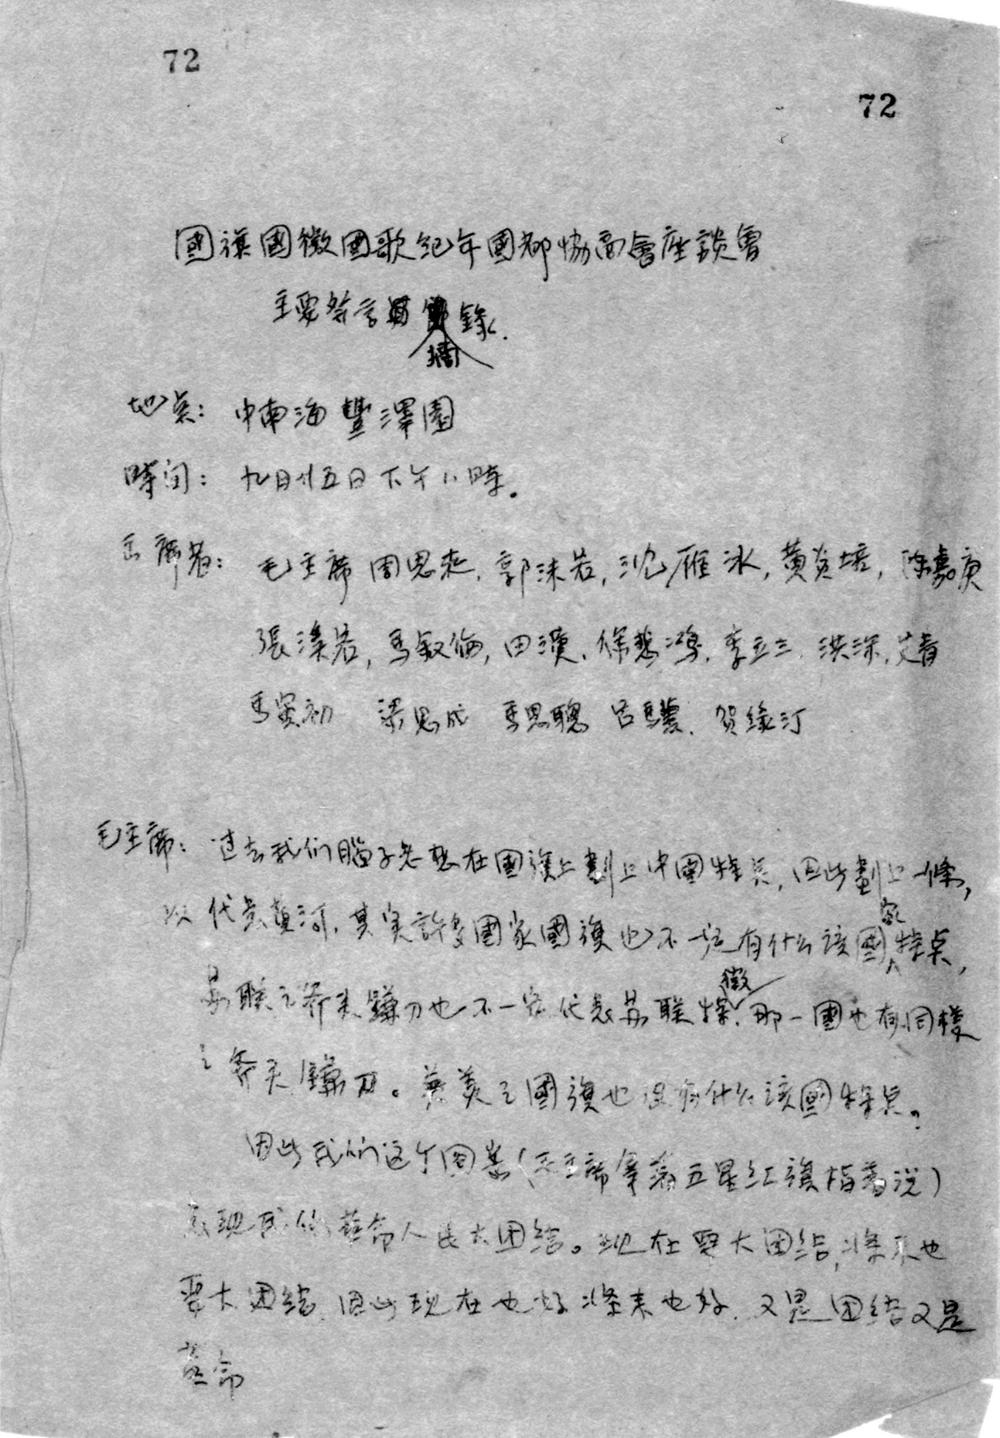 72
72
國旗國徽國歌紀年國都協商會座談會
主要發言摘錄.
地点：中南海豐澤園
時间：九月廿五日下午八時。
出席者：毛主席 周恩来, 郭沫若, 沈雁冰, 黄炎培, 陈嘉庚
張溪若, 馬叙倫, 田漢, 徐悲鴻, 李立三, 洪深, 艾青
馬寅初 梁思成 馬思聰 吕驥, 贺綠汀
毛主席：过去我们腦子老想在國旗上劃上中國特点, 因此劃上一條,
以代表黄河, 其实許多國家國旗也不一定有什么该國家特点,
苏联之斧头鐮刀也不一定代表苏联特徵, 那一國也有同樣
之斧头鐮刀。英美之國旗也没有什么该國特点。
因此我们这个图案(毛主席拿着五星红旗指着说)
表现我们革命人民大团结。现在要大团结, 将来也
要大团结, 因此现在也好将来也好, 又是团结又是
革命